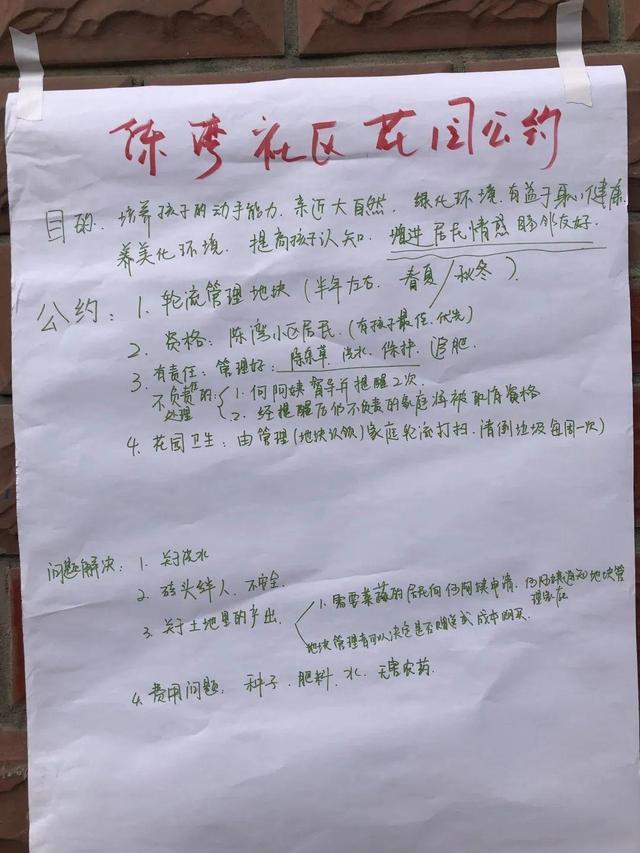 陈湾社区花园公约
目的: 培养孩子的动手能力、亲近大自然、绿化环境、有益于身心健康
养美化环境、提高孩子认知、增进居民情感 睦邻友好.
公约: 1. 轮流管理地块 (半年左右、春夏/秋冬)
2. 资格: 陈湾小区居民 (有孩子最佳、优先)
3. 有责任: 管理好: 除杂草、浇水、保护、追肥
不负责的: 1. 何阿姨督导并提醒2次
处理 2. 经提醒后仍不负责的家庭将被取消资格
4. 花园卫生: 由管理(地块认领)家庭轮流打扫、清倒垃圾每周一次)
问题解决: 1. 关于浇水
2. 砖头绊人、不安全
3. 关于土地里的产出、 1. 需要果蔬的居民向何阿姨申请、何阿姨通知地块管
理家庭
地块管理者可以决定是否赠送或成本购买.
4. 费用问题、种子、肥料、水、无害农药.